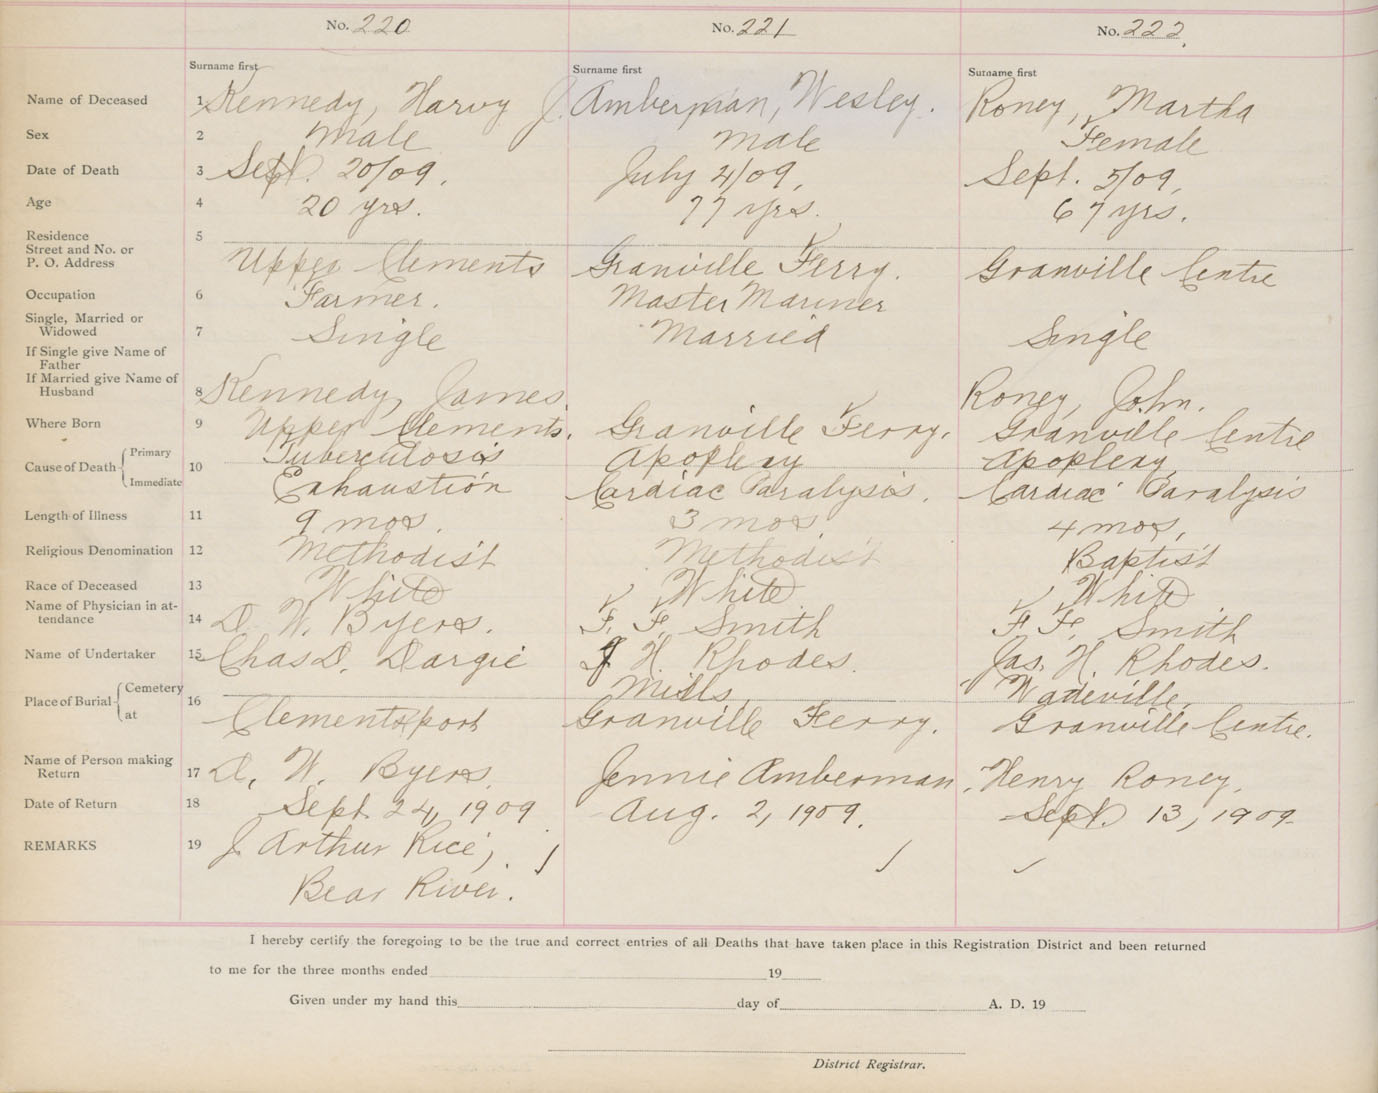 No. 220 No. 221 No. 222
Surname first Surname first Surname first
Name of Deceased 1 Kennedy, Harvy J. Amberman, Wesley. Roney, Martha
Sex 2 Male Male Female
Date of Death 3 Sept. 20/09. July 4/09. Sept. 5/09.
Age 4 20 yrs. 77 yrs. 67 yrs.
Residence 5
Street and No. or
P. O. Address Upper Clements Granville Ferry. Granville Centre
Occupation 6 Farmer. Master Mariner
Single, Married or
Widowed 7 Single Married Single
If Single give Name of
Father
If Married give Name of
Husband 8 Kennedy, James. Roney, John.
Where Born 9 Upper Clements. Granville Ferry. Granville Centre
Cause of Death Primary 10 Tuberculosis Apoplexy Apoplexy
Immediate Exhaustion Cardiac Paralysis. Cardiac Paralysis
Length of Illness 11 9 mos. 3 mos 4 mos.
Religious Denomination 12 Methodist Methodist Baptist
Race of Deceased 13 White White White
Name of Physician in at-
tendance 14 D. W. Byers. F. F. Smith F. F. Smith
Name of Undertaker 15 Chas D. Dargie J H. Rhodes. Jas. H. Rhodes.
Place of Burial Cemetery 16 Mills, Wadeville,
at Clementsport Granville Ferry. Granville Centre.
Name of Person making
Return 17 D. W. Byers. Jennie Amberman. Henry Roney.
Date of Return 18 Sept 24, 1909 Aug. 2, 1909. Sept. 13, 1909.
REMARKS 19 J. Arthur Rice,
Bear River.
I hereby certify the foregoing to be the true and correct entries of all Deaths that have taken place in this Registration District and been returned
to me for the three months ended 19
Given under my hand this day of A. D. 19
District Registrar.